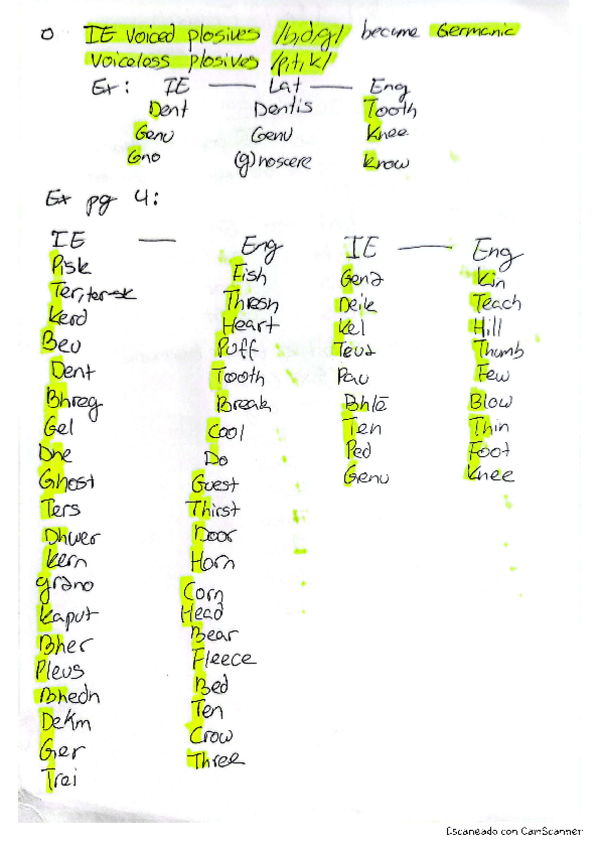 o IE voiced plosives /b,d,g/ became Germanic
voiceless plosives /p,t,k/
Ex: IE — Lat — Eng
Dent Dentis Tooth
Genu Genu Knee
Gno (g)noscere Know
Ex pg 4:
IE — Eng IE — Eng
Pisk Fish Genə Kin
Ter, ter-sk Thresh Deik Teach
Kerd Heart Kel Hill
Beu Puff Teuə Thumb
Dent Tooth Pau Few
Bhreg Break Bhlē Blow
Gel Cool Ten Thin
Dhe Do Ped Foot
Ghost Guest Genu Knee
Ters Thirst
Dhwer Door
Kern Horn
grəno Corn
Kaput Head
Bher Bear
Pleus Fleece
Bhedn Bed
Dekm Ten
Ger Crow
Trei Three
Escaneado con CamScanner